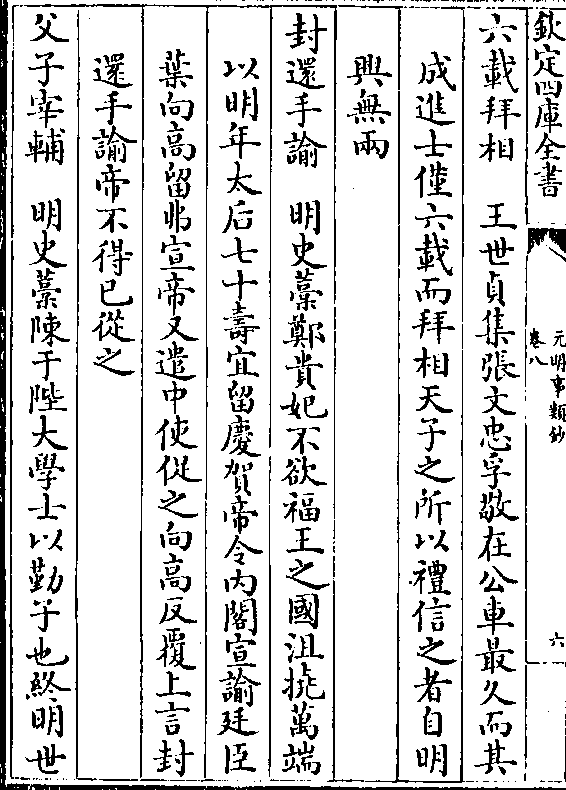 欽定四庫全書
元明事類鈔
卷八
六
六載拜相　王世貞集張文忠孚敬在公車最久而其
成進士僅六載而拜相天子之所以禮信之者自明
興無兩
封還手諭　明史藁鄭貴妃不欲福王之國沮撓萬端
以明年太后七十壽宜留慶賀帝令内閣宣諭廷臣
葉向高留弗宣帝又遣中使促之向高反覆上言封
還手諭帝不得已從之
父子宰輔　明史藁陳于陛大學士以勤子也終明世